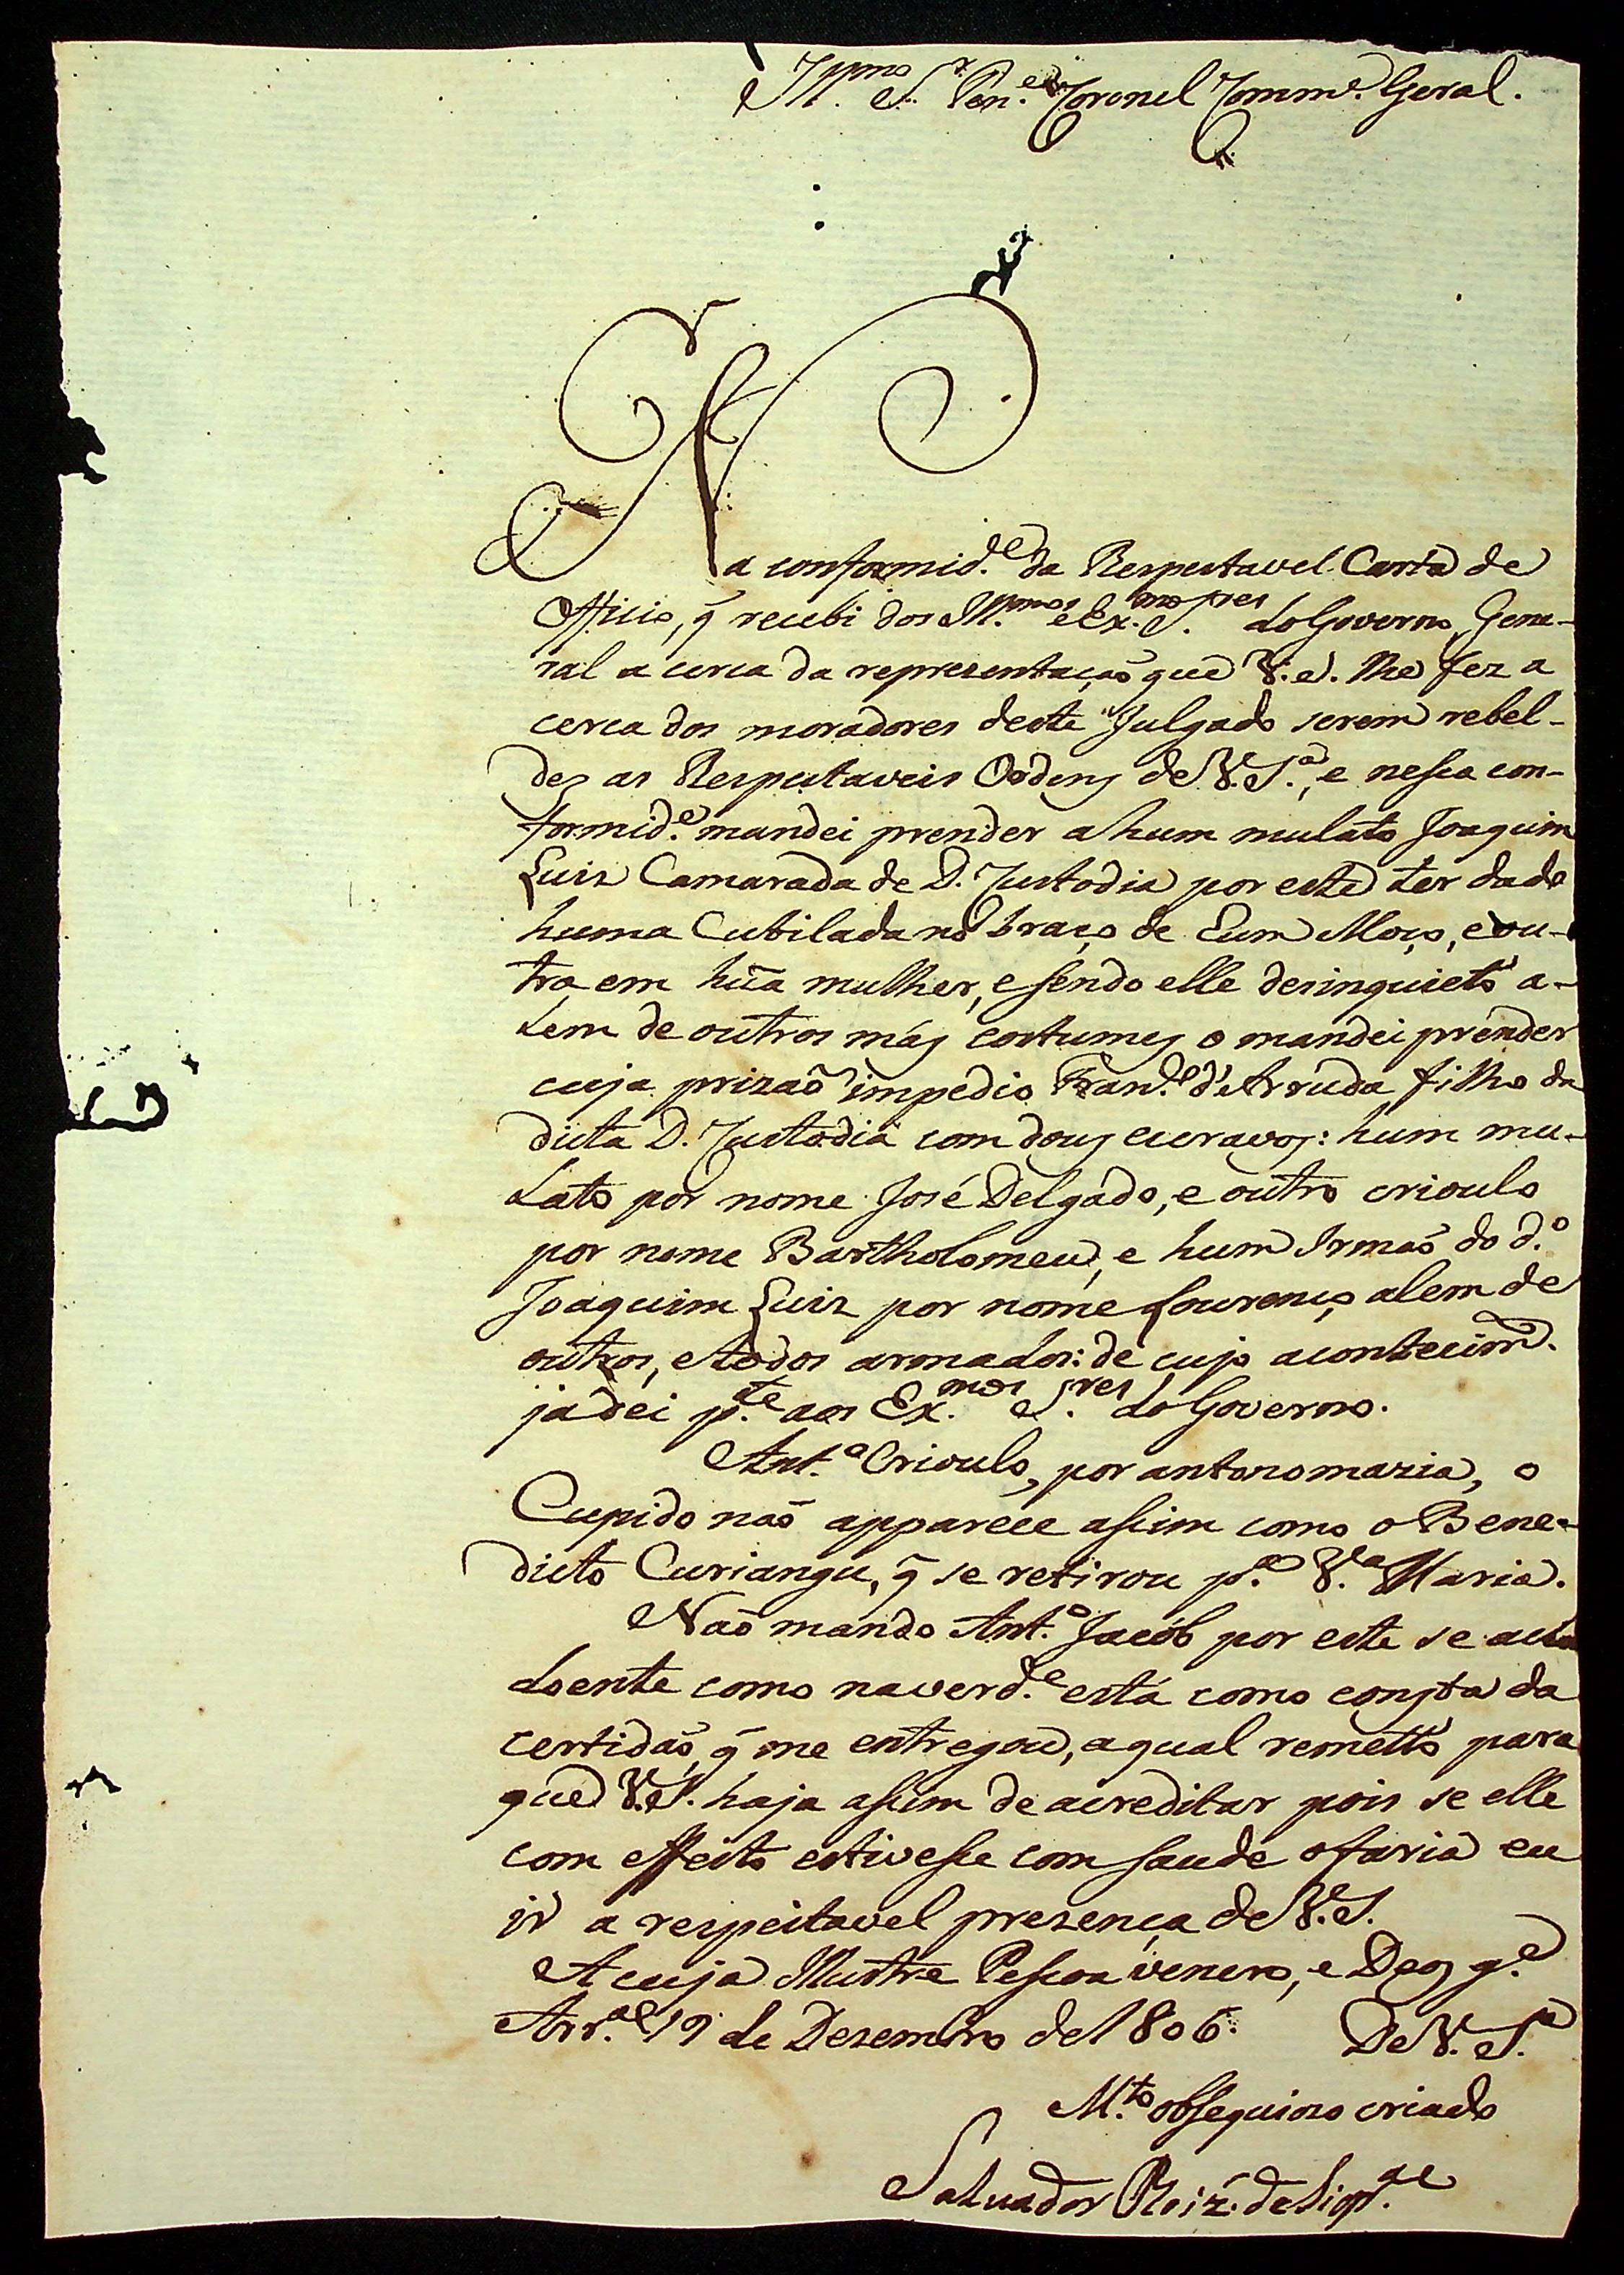 Ill.mo S.r Ten.e Coronel Comm.e Geral.
Na conformid.e da Respectavel Carta de
Officio, q̃ recebi dos Ill.mos e Ex.mos S.res do Governo Gene-
ral a cerca da representaçaõ que V. S. lhe fez a
cerca dos moradores deste Julgado serem rebel-
des as Respectaveis Ordens de V. S.a, e nesca con-
formid.e mandei prender a hum mulato Joaquim
Luis Camarada de D. Custodia por este ter dado
huma Cutilada no braço de hum Moço, e ou-
tra em hũa mulher, e sendo elle desinquieto a-
lem de outros más costumes o mandei prender
cuja prizaõ impedio Fran.co d'Arruda filho da
dicta D. Custodia com dous escravos: hum mu-
lato por nome José Delgado, e outro crioulo
por nome Bartholomeu, e hum Irmaõ do d.o
Joaquim Luis por nome Lourenço alem de
outros, e todos armados: de cujo acontecim.
ja dei p.te aos Ex.mos S.res do Governo.
Ant.o Crioulo, por antonomazia, o
Cupido naõ apparece ascim como o Bene-
dicto Curiangu, q̃ se retirou p.a V.a Maria.
Naõ mando Ant.o Jacób por este se acha
doente como na verd.e está como consta da
certidaõ q̃ me entregou, a qual remetto para
que V. S. haja ascim de acreditar pois se elle
com effeito estivesce com saude o faria eu
ir a respeitavel prezença de V. S.
A cuja Illustre Pescoa venero, e Deos g.e
Arr.al 19 de Dezembro de 1806. De V. S.a
M.to obsequiozo criado
Salvador Roiz. de Siqr.a